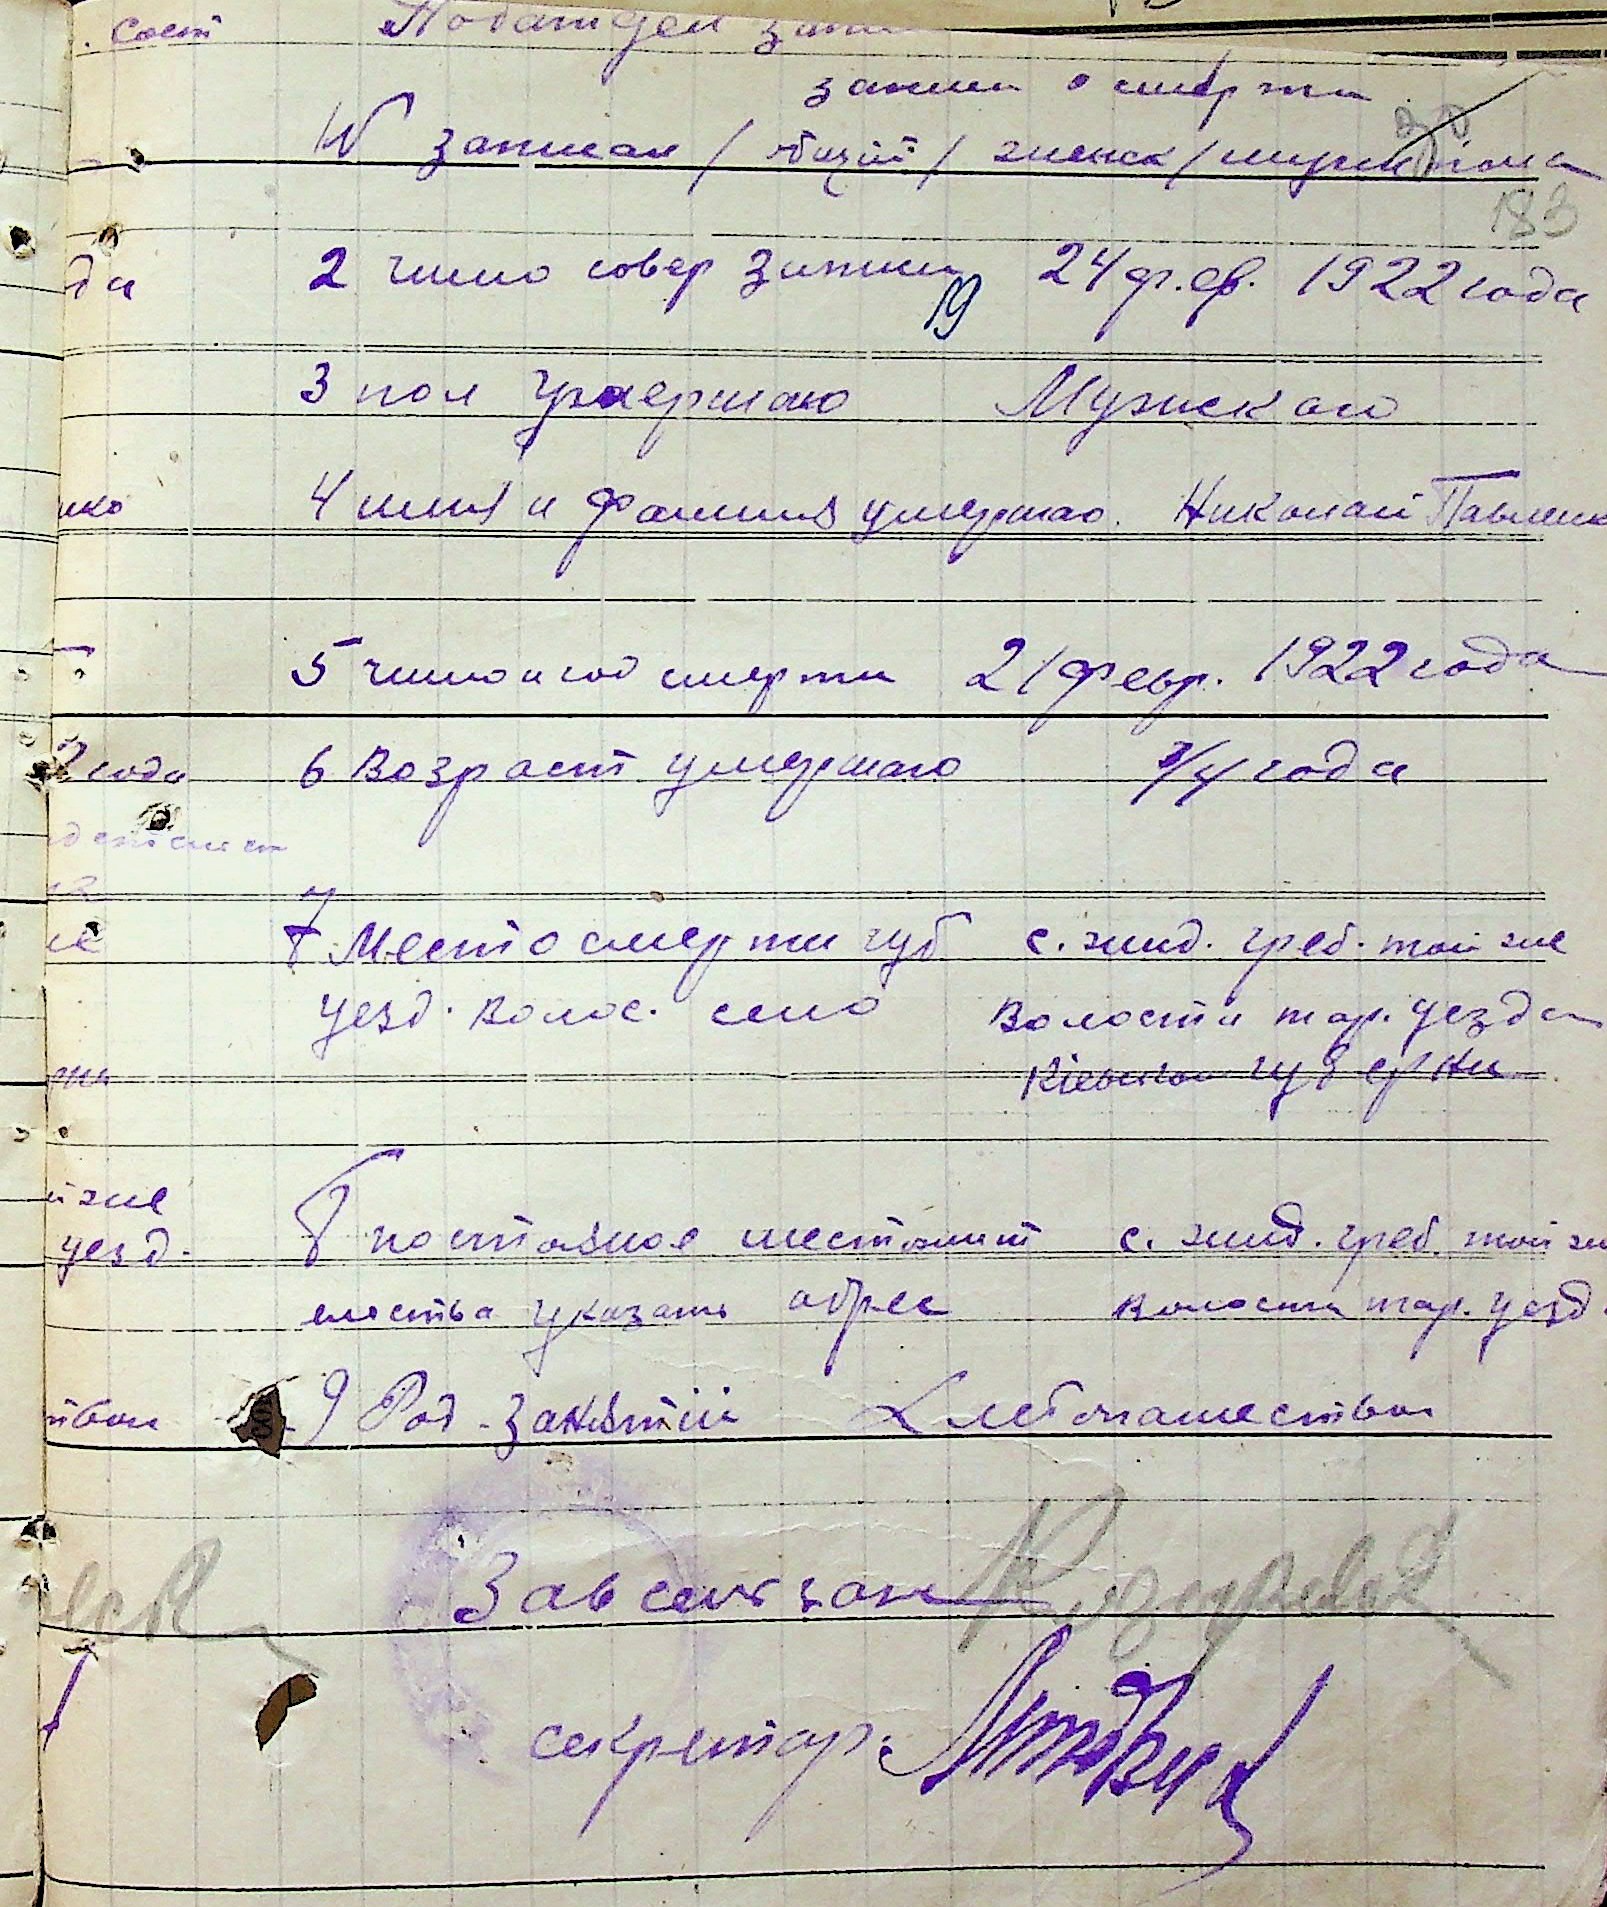 . сост Подотдел запи
записи о смерти
№ записи / общий / женск / мужс
183
да 2 число совер записи 24 фев. 1922 года
19
3 пол умершаго Мужского
нко 4 имя и фамилия умершаго. Николай Павленк
5 число и год смерти 21 февр. 1922 года
2 года 6 Возраст умершаго 3/4 года
7 Место смерти губ с. жид. греб. той же
уезд. волос. село Волости тар. уезда
Кіевской губерни
й же 8 постояное местожит с. жид. греб. той же
уезд. ельства указать адрес волости тар. уезд.
тво 9 Род занятій Хлебопашество
Завсекзап
секретар. Литвин